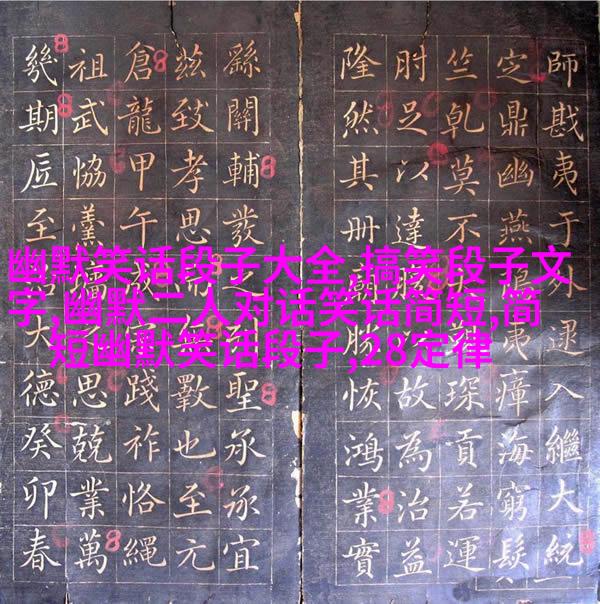 幽默笑话段子大全,搞笑段子文
字,幽默二人对话笑话简短,简
短幽默笑话段子,28定律
師戡夷于外逮入繼大統
定鼎幽燕夷瘴海窮髮
竺乹莫不琛貢若運
肘足以達故為治益
隆然其冊勝恢鴻業實
繇關輔發聖承承宜
茲致孝思斁也至元
倉龍甲午踐祚恪繩
祖武協羹思兢業萬
幾期匠至大德癸卯春